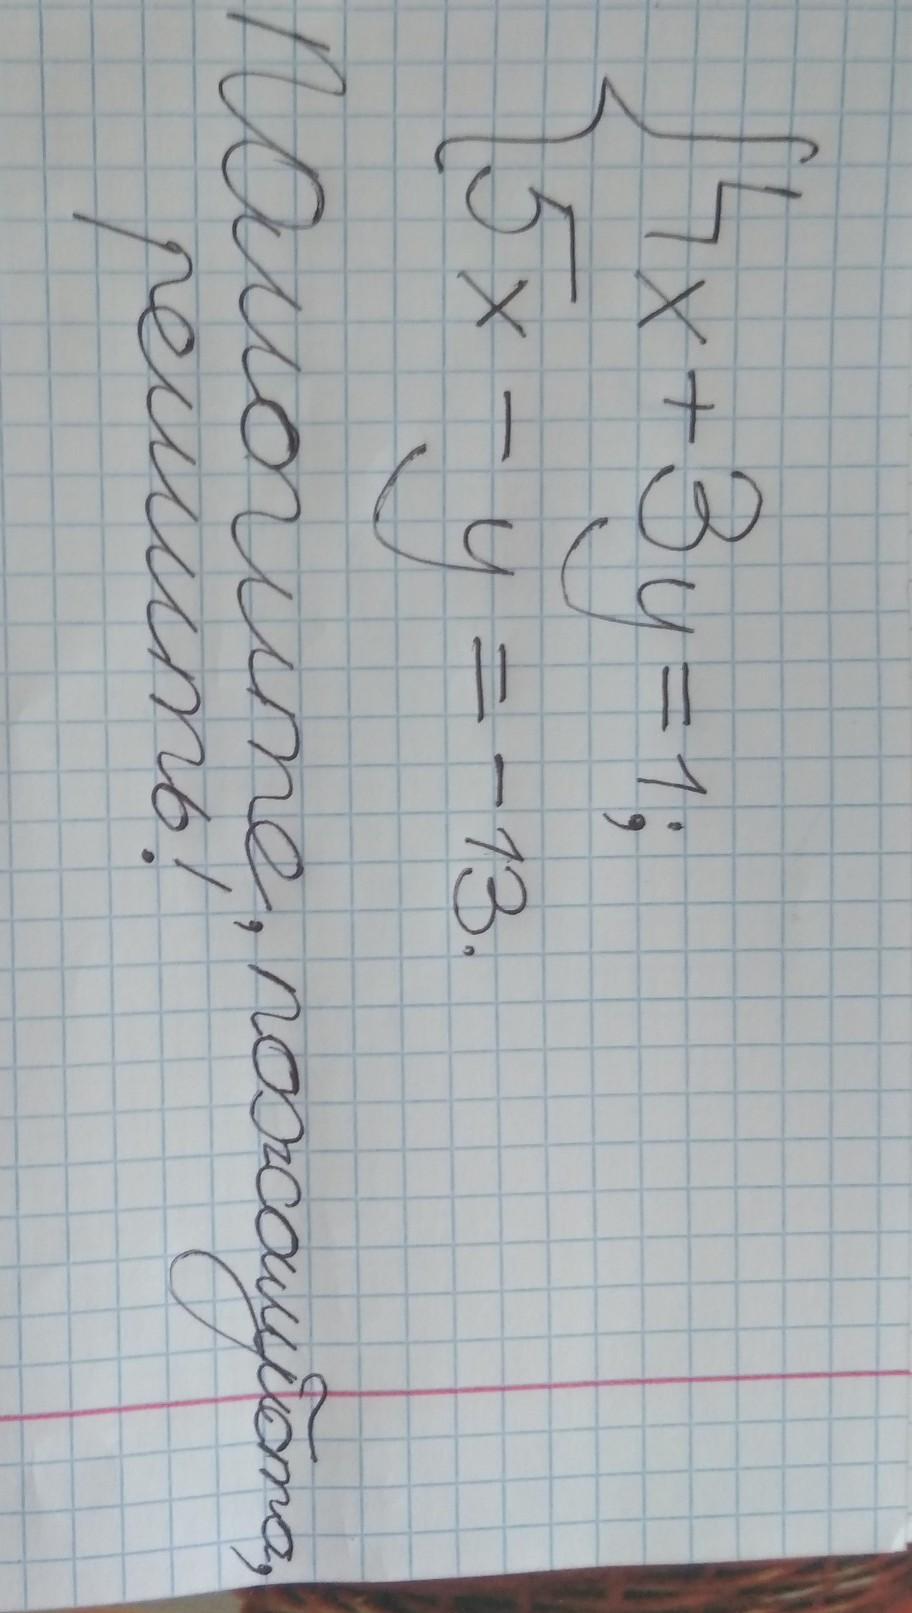 {4x + 3y = 1;
5x - y = - 13.
Помогите, пожалуйста,
решить!